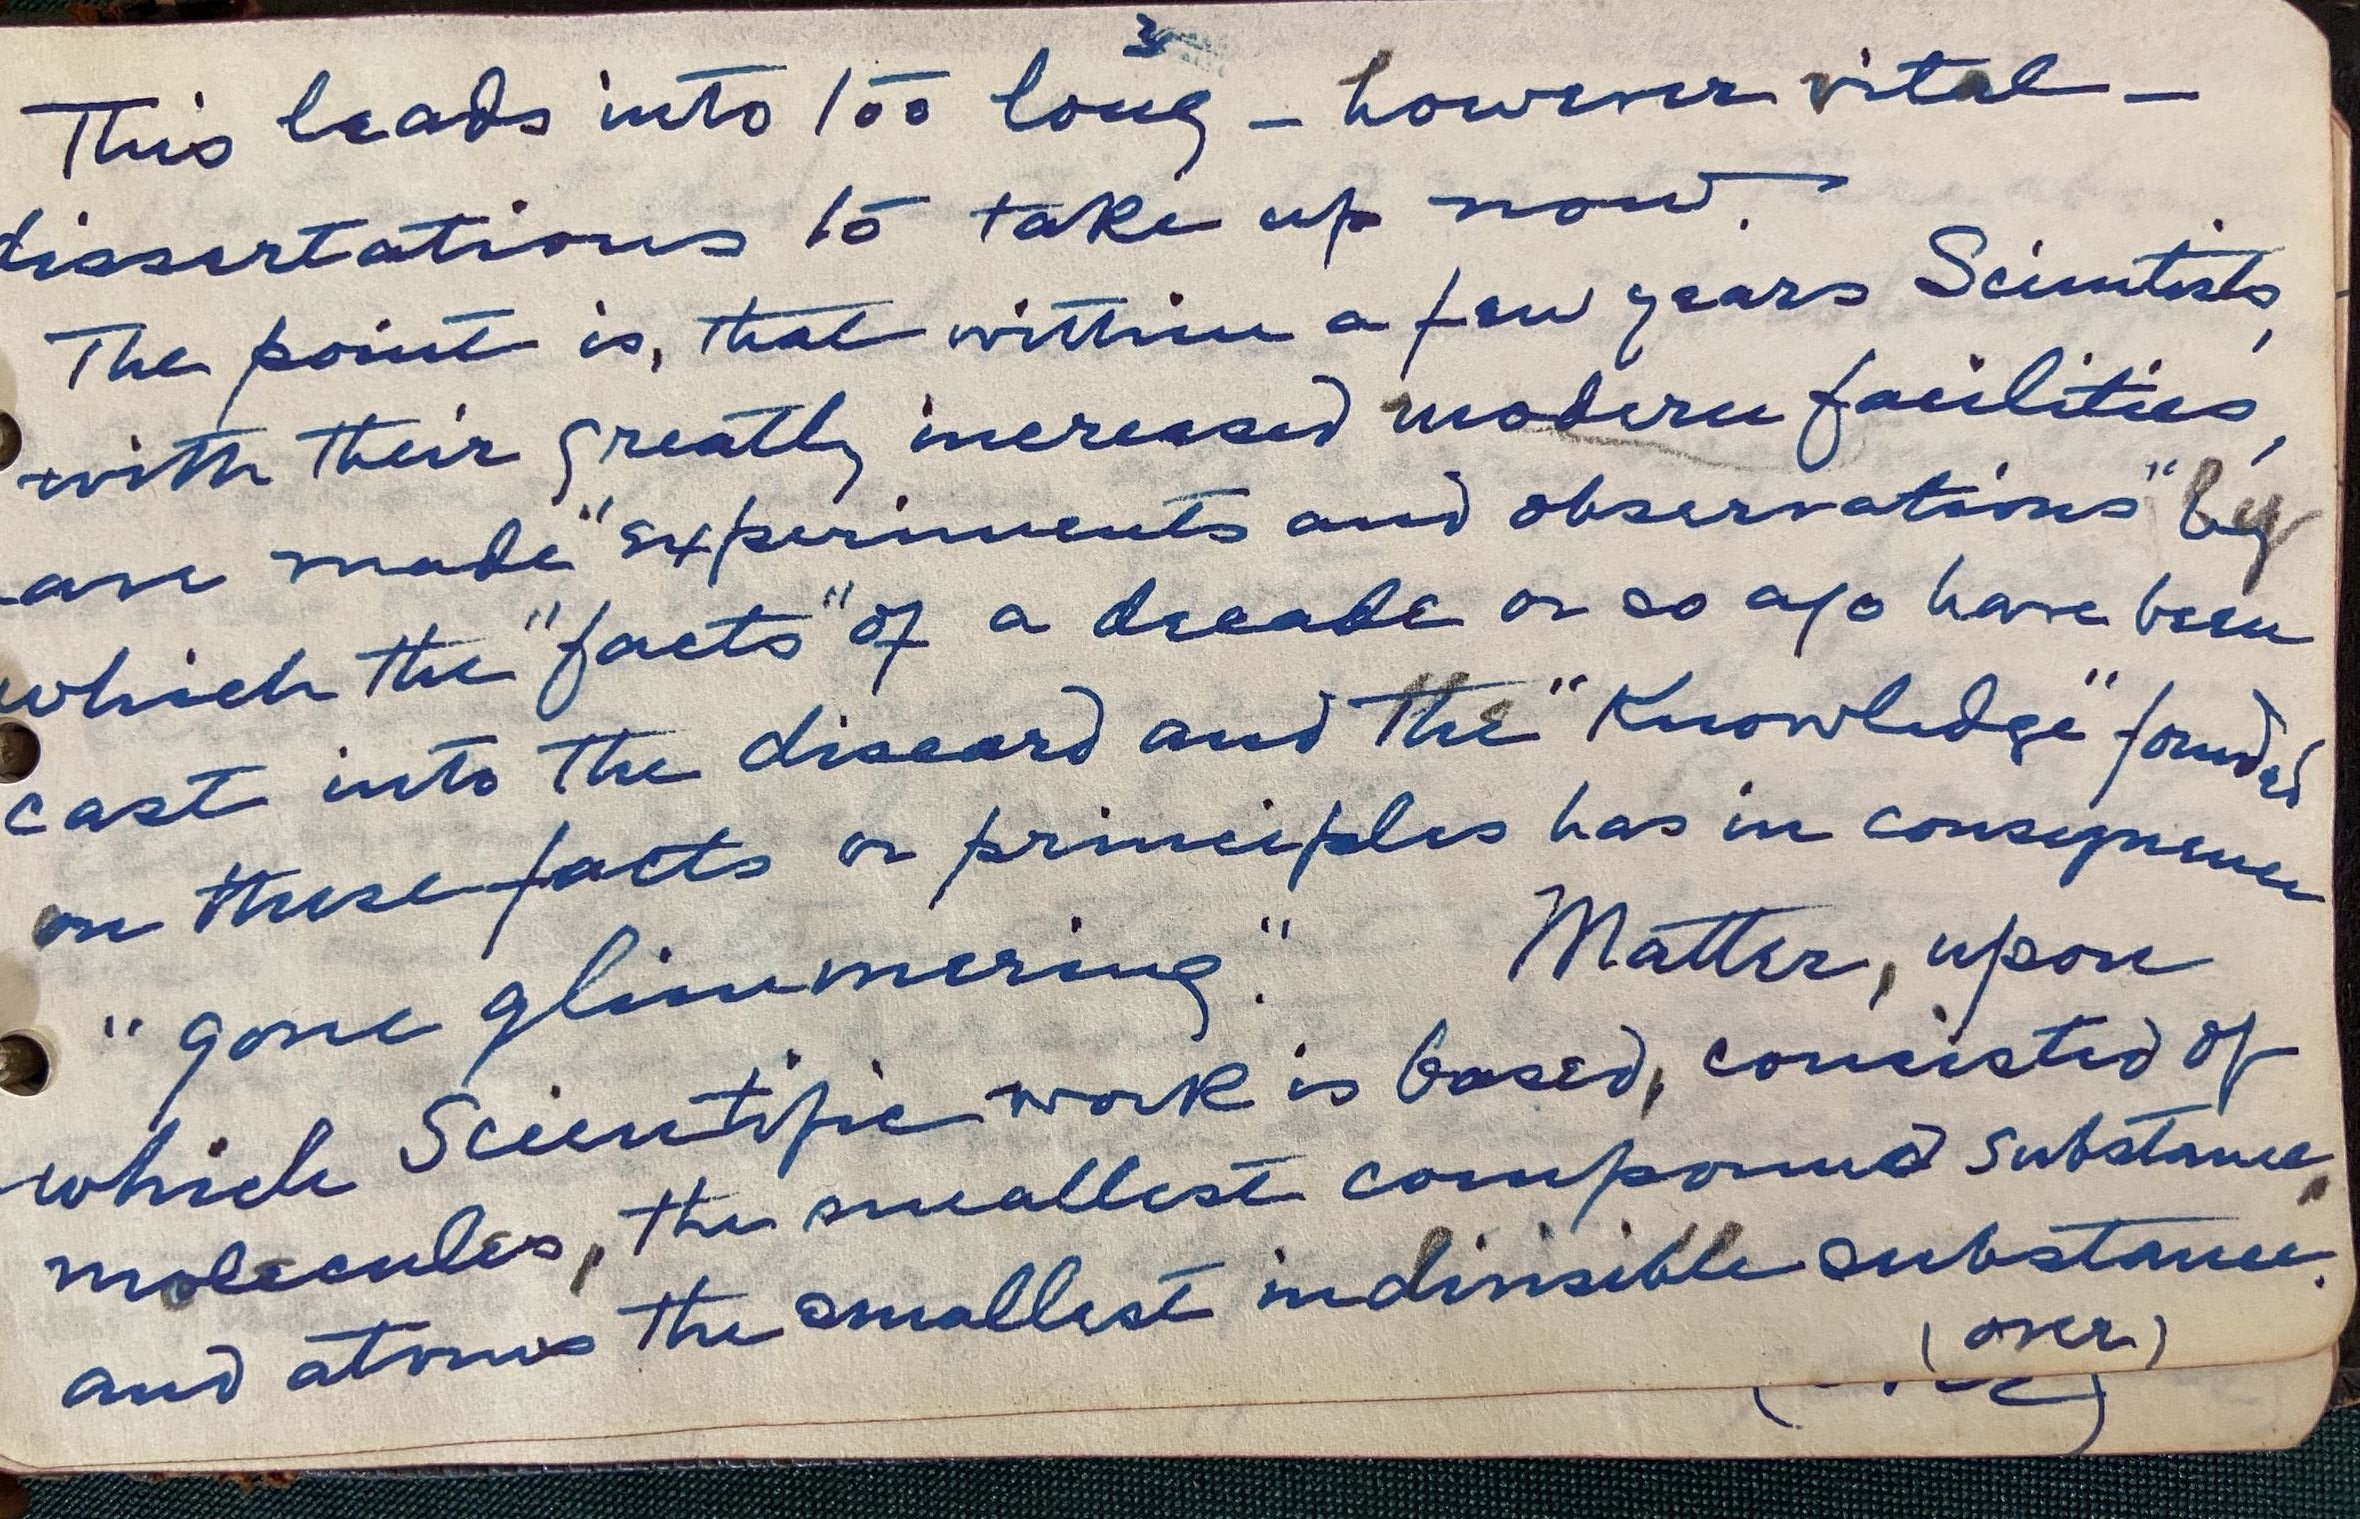 3
This leads into too long – however vital –
dissertations to take up now.
The point is, that within a few years Scientists,
with their greatly increased modern facilities,
are made "experiments and observations" by
which the "facts" of a decade or so ago have been
cast into the discard and the "Knowledge" founded
on these facts or principles has in consequence
"gone glimmering." Matter, upon
which Scientific work is based, consisted of
molecules, the smallest compound substance,
and atoms the smallest indivisible substance.
(over)